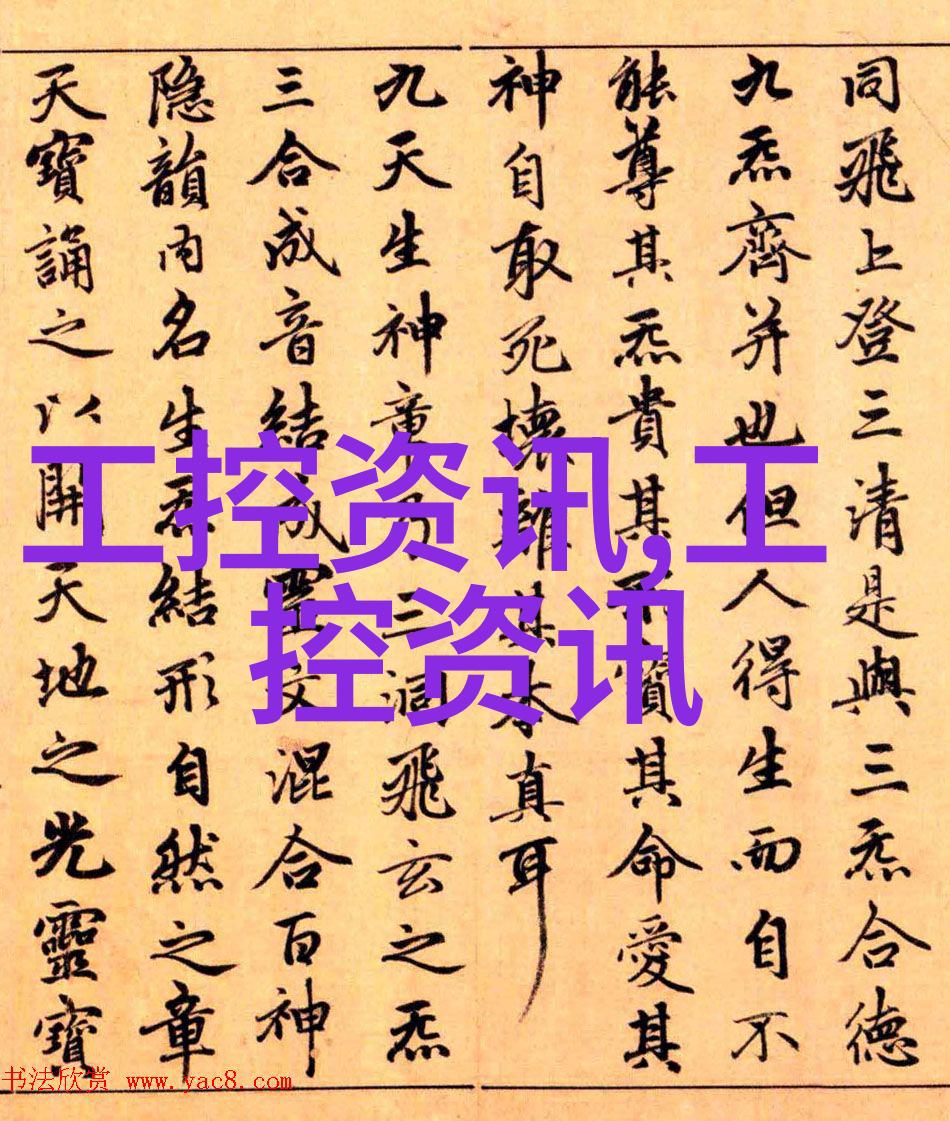 同飛上登三清是與三炁合德
九炁齊并也但人得生而自不
能尊其炁貴其形寶其命愛其
神自取死壞離其本真耳
九天生神章乃三洞飛玄之炁
三合成音結成靈文混合百神
隐韻内名生炁結形自然之章
天寶誦之以開天地之光靈寶
工控资讯,工
控资讯
书法欣赏 www.yac8.com